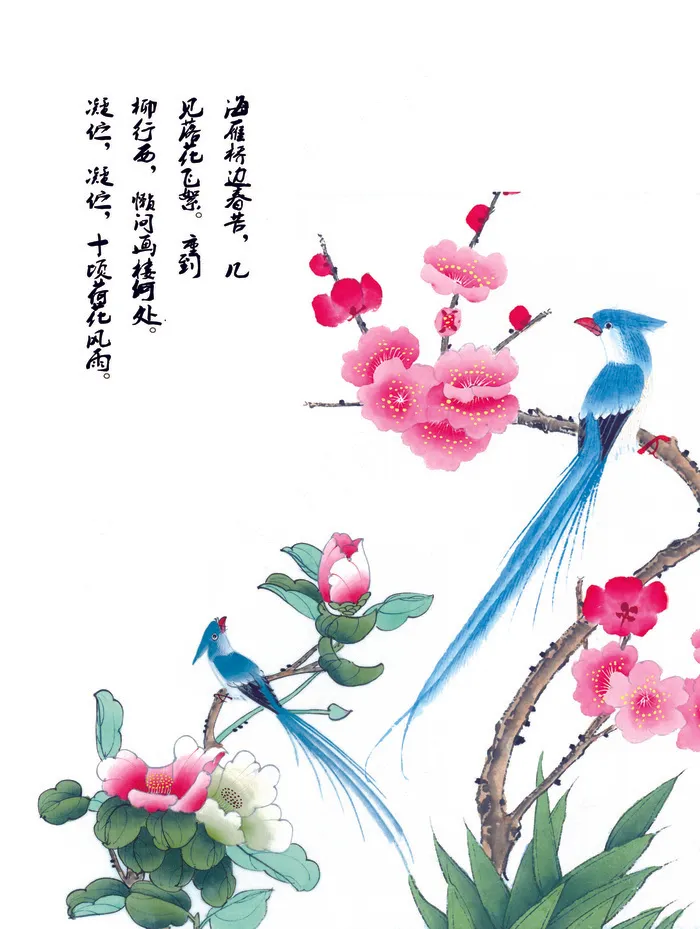 海雁桥边春苦，几
见落花飞絮。重到
柳行西，懒问画楼何处。
凝伫，凝伫，十顷荷花风雨。